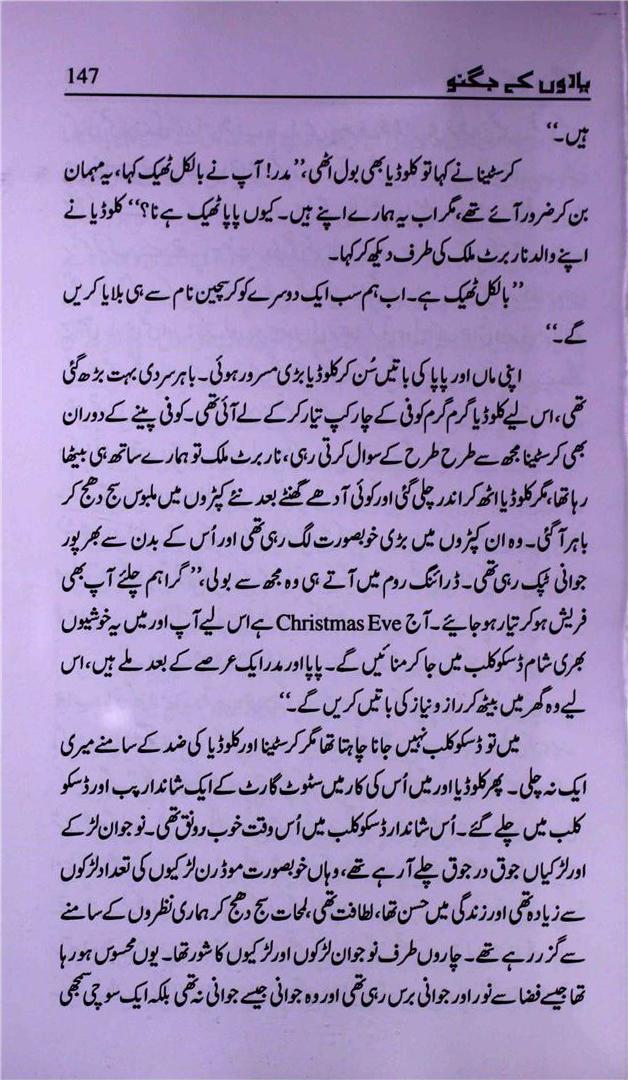 147
یادوں کے جگنو
ہیں۔‘‘
کرسٹینا نے کہا تو کلوڈیا بھی بول اٹھی، ’’مدر! آپ نے بالکل ٹھیک کہا، یہ مہمان
بن کر ضرور آئے تھے، مگر اب یہ ہمارے اپنے ہیں۔ کیوں پاپا ٹھیک ہے نا؟‘‘ کلوڈیا نے
اپنے والد نار برٹ ملک کی طرف دیکھ کر کہا۔
’’بالکل ٹھیک ہے۔ اب ہم سب ایک دوسرے کو کرسچین نام سے ہی بلایا کریں
گے۔‘‘
اپنی ماں اور پاپا کی باتیں سُن کر کلوڈیا بڑی مسرور ہوئی۔ باہر سردی بہت بڑھ گئی
تھی، اس لیے کلوڈیا گرم گرم کوفی کے چار کپ تیار کر کے لے آئی تھی۔ کوفی پینے کے دوران
بھی کرسٹینا مجھ سے طرح طرح کے سوال کرتی رہی، نار برٹ ملک تو ہمارے ساتھ ہی بیٹھا
رہا تھا، مگر کلوڈیا اٹھ کر اندر چلی گئی اور کوئی آدھے گھنٹے بعد نئے کپڑوں میں ملبوس سج دھج کر
باہر آ گئی۔ وہ ان کپڑوں میں بڑی خوبصورت لگ رہی تھی اور اُس کے بدن سے بھر پور
جوانی ٹپک رہی تھی۔ ڈرائنگ روم میں آتے ہی وہ مجھ سے بولی، ’’گراہم چلئے آپ بھی
فریش ہو کر تیار ہو جائیے۔ آج Christmas Eve ہے اس لیے آپ اور میں یہ خوشیوں
بھری شام ڈسکو کلب میں جا کر منائیں گے۔ پاپا اور مدر ایک عرصے کے بعد ملے ہیں، اس
لیے وہ گھر میں بیٹھ کر راز و نیاز کی باتیں کریں گے۔‘‘
میں تو ڈسکو کلب نہیں جانا چاہتا تھا مگر کرسٹینا اور کلوڈیا کی ضد کے سامنے میری
ایک نہ چلی۔ پھر کلوڈیا اور میں اُس کی کار میں سٹوٹ گارٹ کے ایک شاندار پب اور ڈسکو
کلب میں چلے گئے۔ اُس شاندار ڈسکو کلب میں اُس وقت خوب رونق تھی۔ نو جوان لڑکے
اور لڑکیاں جوق در جوق چلے آ رہے تھے، وہاں خوبصورت موڈرن لڑکیوں کی تعداد لڑکوں
سے زیادہ تھی اور زندگی میں حسن تھا، لطافت تھی، لمحات سج دھج کر ہماری نظروں کے سامنے
سے گزر رہے تھے۔ چاروں طرف نو جوان لڑکوں اور لڑکیوں کا شور تھا۔ یوں محسوس ہو رہا
تھا جیسے فضا سے نور اور جوانی برس رہی تھی اور وہ جوانی جیسے جوانی نہ تھی بلکہ ایک سوچی سمجھی